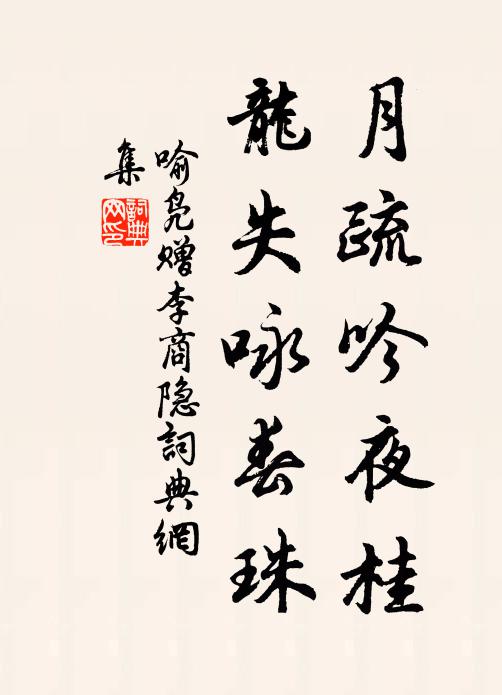 月疏吟夜桂
龍失咏春珠
喻凫赠李商隐詞典網
集
詞典
网印